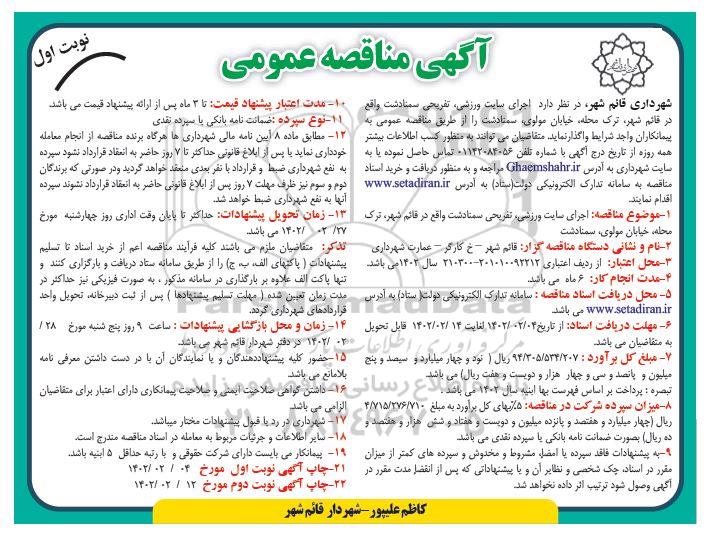 آگهی مناقصه عمومی
نوبت اول
شهرداری قائم شهر، در نظر دارد اجرای سایت ورزشی، تفریحی سمنادشت واقع
در قائم شهر، ترک محله، خیابان مولوی، سمنادشت را از طریق مناقصه عمومی به
پیمانکاران واجد شرایط واگذارنماید. متقاضیان می توانند به منظور کسب اطلاعات بیشتر
همه روزه از تاریخ درج آگهی با شماره تلفن ۰۱۱۴۲۰۸۴۰۵۶ تماس حاصل نموده یا به
سایت شهرداری به آدرس Ghaemshahr.ir مراجعه و به منظور دریافت و خرید اسناد
مناقصه به سامانه تدارک الکترونیکی دولت(ستاد) به آدرس www.setadiran.ir
اقدام نمایند.
۱-موضوع مناقصه: اجرای سایت ورزشی، تفریحی سمنادشت واقع در قائم شهر، ترک
محله، خیابان مولوی، سمنادشت
۲-نام و نشانی دستگاه مناقصه گزار: قائم شهر – خ کارگر – عمارت شهرداری
۳-محل اعتبار: از ردیف اعتباری ۲۱۰۳۰۰-۲۰۱۰۱۰۰۹۲۲۱۲ سال ۱۴۰۲می باشد.
۴-مدت انجام کار: ۶ ماه می باشد.
۵- محل دریافت اسناد مناقصه : سامانه تدارک الکترونیکی دولت( ستاد) به آدرس
www.setadiran.ir می باشد.
۶- مهلت دریافت اسناد: از تاریخ۱۴۰۲/۰۲/۰۴ لغایت ۱۴۰۲/۰۲/۱۴ قابل تحویل
به متقاضیان می باشد.
۷- مبلغ کل برآورد : ۹۴/۳۰۵/۵۳۴/۲۰۷ ریال ( نود و چهار میلیارد و سیصد و پنج
میلیون و پانصد و سی و چهار هزار و دویست و هفت ریال) می باشد.
تبصره : پرداخت بر اساس فهرست بها ابنیه سال ۱۴۰۲ می باشد .
۸-میزان سپرده شرکت در مناقصه: ۵٪بهای کل برآورد به مبلغ ۴/۷۱۵/۲۷۶/۷۱۰
ریال (چهار میلیارد و هفتصد و پانزده میلیون و دویست و هفتاد و شش هزار و هفتصد و
ده ریال) بصورت ضمانت نامه بانکی یا سپرده نقدی می باشد.
۹-به پیشنهادات فاقد سپرده یا امضا، مشروط و مخدوش و سپرده های کمتر از میزان
مقرر در اسناد، چک شخصی و نظایر آن و یا پیشنهاداتی که پس از انقضا، مدت مقرر در
آگهی وصول شود ترتیب اثر داده نخواهد شد.
۱۰- مدت اعتبار پیشنهاد قیمت: تا ۳ ماه پس از ارائه پیشنهاد قیمت می باشد.
۱۱-نوع سپرده :ضمانت نامه بانکی یا سپرده نقدی
۱۲- مطابق ماده ۸ آیین نامه مالی شهرداری ها هرگاه برنده مناقصه از انجام معامله
خودداری نماید یا پس از ابلاغ قانونی حداکثر تا ۷ روز حاضر به انعقاد قرارداد نشود سپرده
به نفع شهرداری ضبط و قرارداد با نفر بعدی منعقد خواهد گردید ودر صورتی که برندگان
دوم و سوم نیز ظرف مهلت ۷ روز پس از ابلاغ قانونی حاضر به انعقاد قرارداد نشوند سپرده
آنها به نفع شهرداری ضبط خواهد شد.
۱۳- زمان تحویل پیشنهادات: حداکثر تا پایان وقت اداری روز چهارشنبه مورخ
۲۷/ ۰۲ /۱۴۰۲ می باشد.
تذکر: متقاضیان ملزم می باشند کلیه فرآیند مناقصه اعم از خرید اسناد تا تسلیم
پیشنهادات ( پاکتهای الف، ب، ج) را از طریق سامانه ستاد دریافت و بارگزاری کنند و
تنها پاکت الف علاوه بر بارگذاری در سامانه مذکور ، به صورت فیزیکی نیز حداکثر در
مدت زمان تعیین شده ( مهلت تسلیم پیشنهادها ) پس از ثبت دبیرخانه، تحویل واحد
قراردادهای شهرداری گردد.
۱۴- زمان و محل بازگشایی پیشنهادات : ساعت ۹ روز پنج شنبه مورخ ۲۸ /
۰۲ /۱۴۰۲ در دفتر شهردار قائم شهر می باشد.
۱۵-حضور کلیه پیشنهاددهندگان و یا نمایندگان آن با در دست داشتن معرفی نامه
بلامانع می باشد.
۱۶- داشتن گواهی صلاحیت ایمنی و صلاحیت پیمانکاری دارای اعتبار برای متقاضیان
الزامی می باشد.
۱۷- شهرداری در رد یا قبول پیشنهادات مختار میباشد.
۱۸- سایر اطلاعات و جزئیات مربوط به معامله در اسناد مناقصه مندرج است.
۱۹- پیمانکار می بایست دارای شرکت حقوقی و با رتبه حداقل ۵ ابنیه باشد.
۲۱-چاپ آگهی نوبت اول مورخ ۰۴ / ۰۲ /۱۴۰۲
۲۲-چاپ آگهی نوبت دوم مورخ ۱۲ / ۰۲ /۱۴۰۲
کاظم علیپور-شهردار قائم شهر